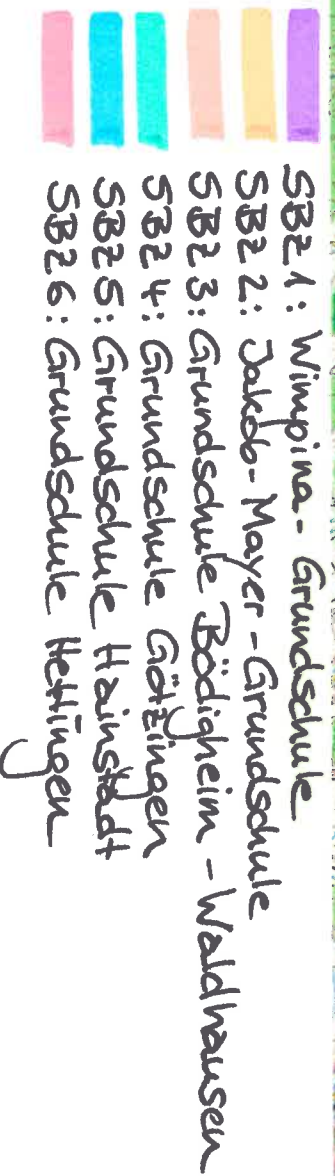 SBZ 1: Wimpina-Grundschule
SBZ 2: Jakob-Mayer-Grundschule
SBZ 3: Grundschule Bödigheim-Waldhausen
SBZ 4: Grundschule Götzingen
SBZ 5: Grundschule Hainstadt
SBZ 6: Grundschule Hettingen